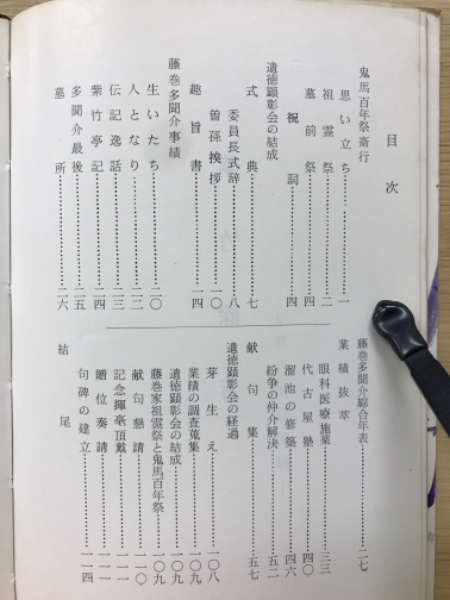 目次
鬼馬百年祭斎行
思い立ち……一
祖霊祭……二
墓前祭……四
祝詞……四
遺徳顕彰会の結成
式典……七
委員長式辞……八
曽孫挨拶……一〇
趣旨書……一四
藤巻多聞介事績
生いたち……二〇
人となり……二二
伝記逸話……二三
紫竹亭記……二四
多聞介最後……二五
墓所……二六
藤巻多聞介綜合年表……二七
業績抜萃
眼科医療施薬……三三
代古屋塾……四〇
溜池の修築……四六
紛争の仲介解決……五二
献句集……五七
遺徳顕彰会の経過
芽生え……一〇八
業績の調査蒐集……一〇九
遺徳顕彰会の結成……一〇九
藤巻家祖霊祭と鬼馬百年祭…一〇九
献句懇請……一一〇
記念揮毫頂戴……一一一
贈位奏請……一一一
句碑の建立……一一四
結尾